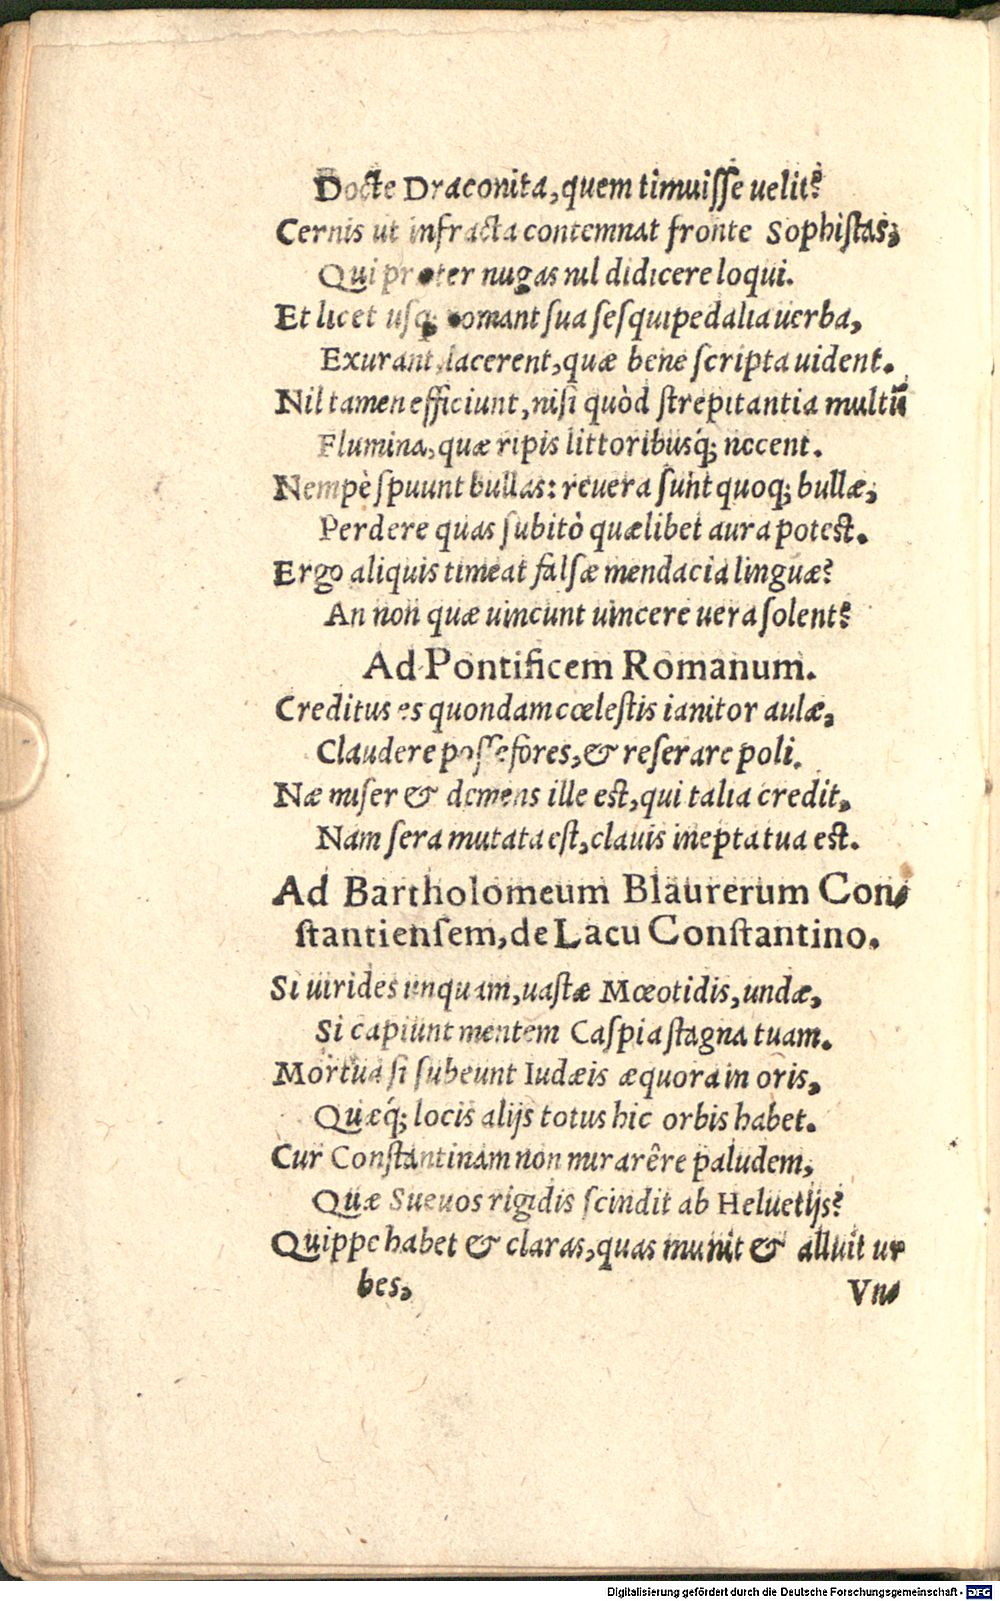 Docte Draconita, quem timuisse uelit?
Cernis ut infracta contemnat fronte Sophistas,
Qui præter nugas nil didicere loqui.
Et licet usq; uomant sua sesquipedalia uerba,
Exurant, lacerent, quæ bene scripta uident.
Nil tamen efficiunt, nisi quòd strepitantia multũ
Flumina, quæ ripis littoribusq́; nocent.
Nempè spuunt bullas: reuera sunt quoq; bullæ,
Perdere quas subitò quælibet aura potest.
Ergo aliquis timeat falsæ mendacia linguæ?
An non quæ uincunt uincere uera solent?
Ad Pontificem Romanum.
Creditus es quondam cœlestis ianitor aulæ,
Claudere posse fores, & reserare poli.
Næ miser & demens ille est, qui talia credit,
Nam sera mutata est, clauis inepta tua est.
Ad Bartholomeum Blaurerum Con-
stantiensem, de Lacu Constantino.
Si uirides unquam, uastæ Mœotidis, undæ,
Si capiunt mentem Caspia stagna tuam.
Mortua si subeunt Iudæis æquora in oris,
Quæq́; locis alijs totus hic orbis habet.
Cur Constantinam non mirarêre paludem,
Quæ Sueuos rigidis scindit ab Heluetijs?
Quippe habet & claras, quas munit & alluit ur
bes,
Vn-
Digitalisierung gefördert durch die Deutsche Forschungsgemeinschaft - DFG